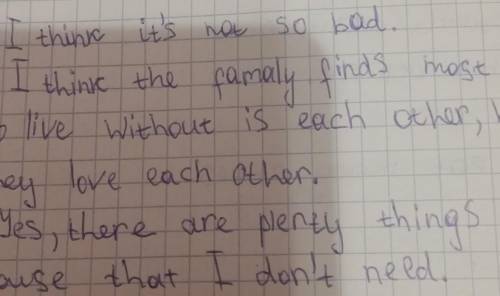 I think it's not so bad.
I think the famaly finds most
live without is each other,
ey love each other.
Yes, there are plenty things
ause that I don't need.